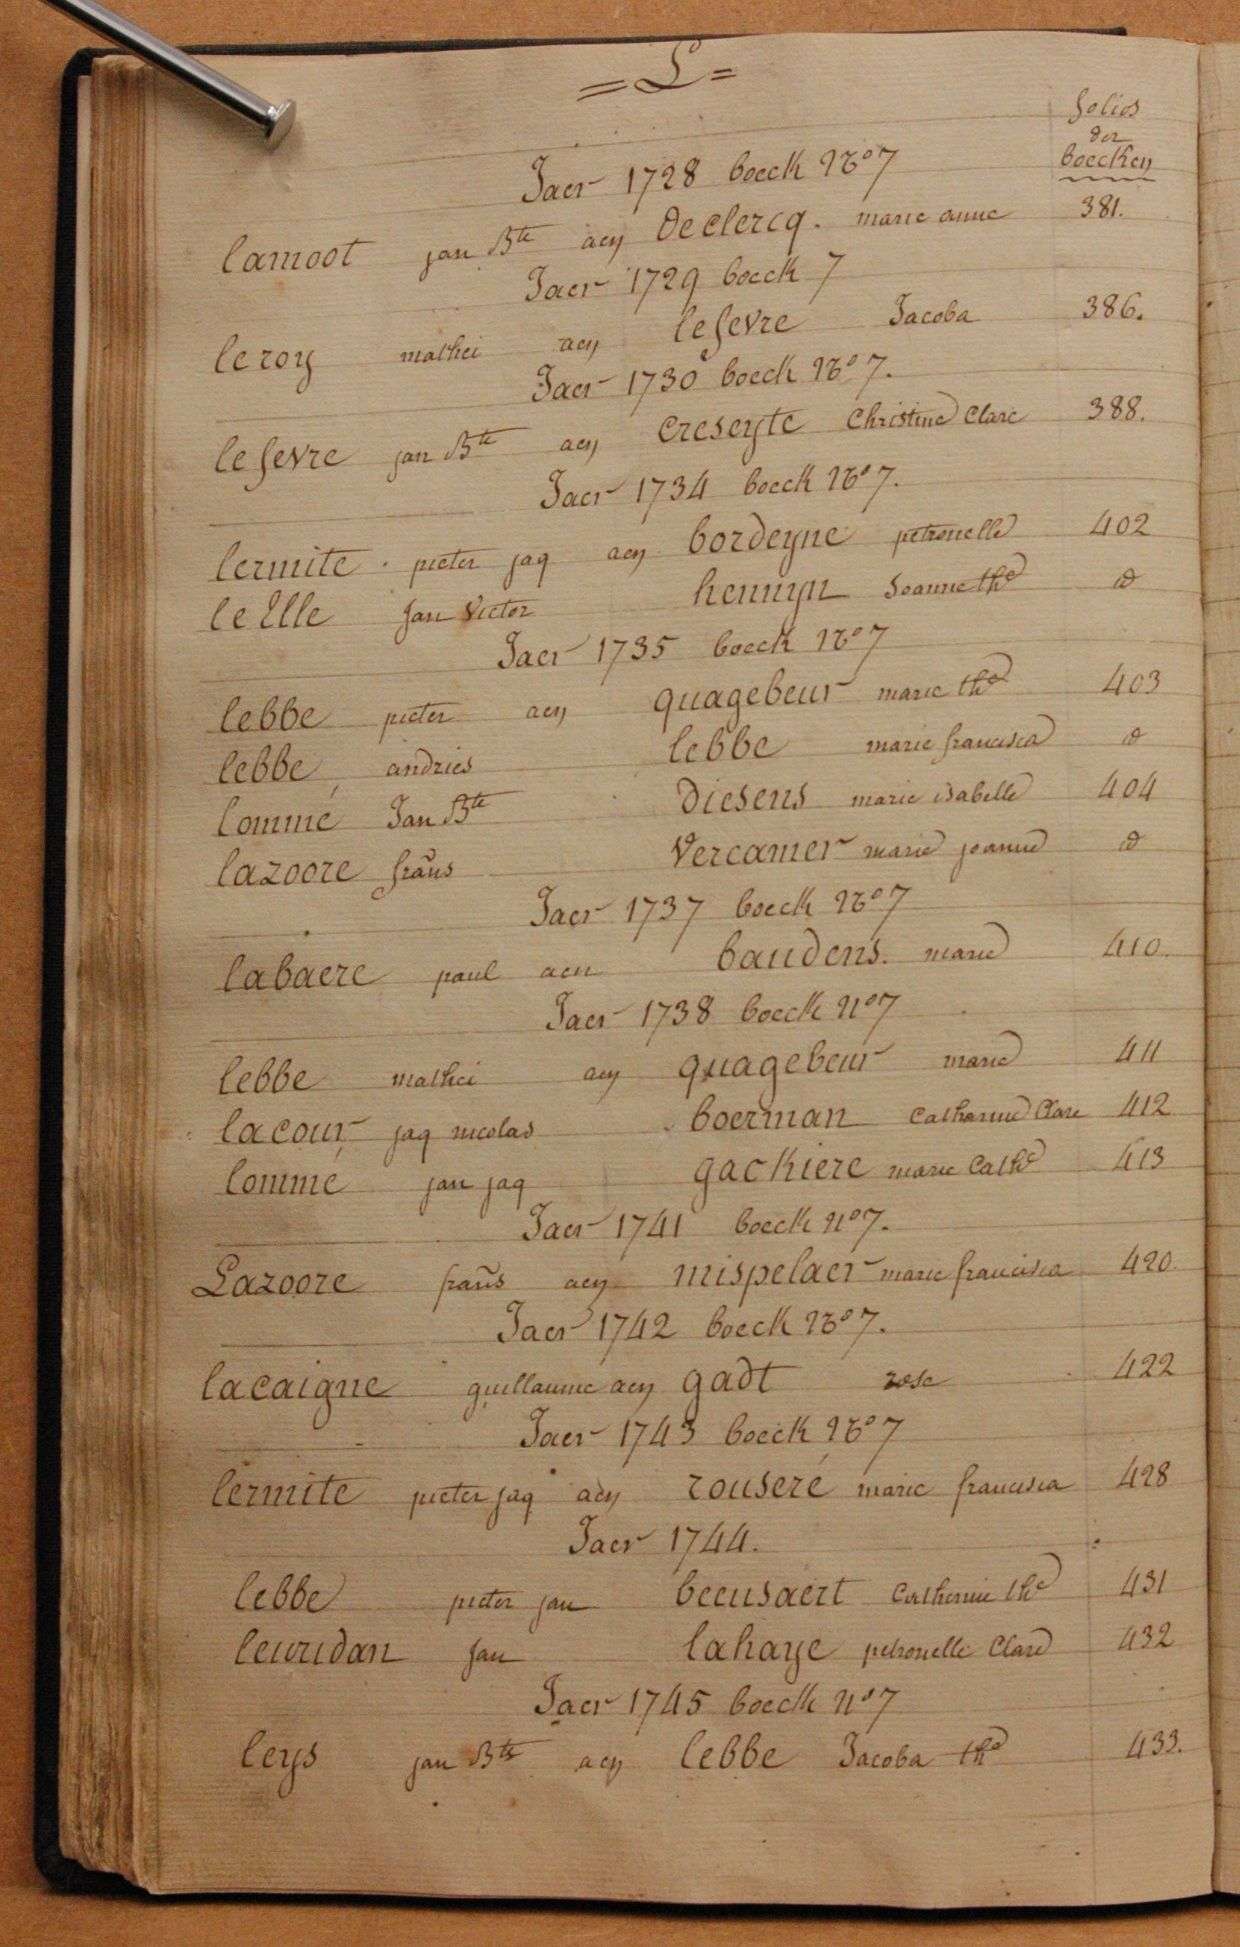 = L =
folios
der
boecken
Jaer 1728 boeck No 7
lamoot jan Bte aen Declercq. marie anne 381.
Jaer 1729 boeck 7
leroy mathei aen lefevre Jacoba 386.
Jaer 1730 boeck No 7.
lefevre jan Bte aen creseyte Christine Clare 388.
Jaer 1734 boeck No 7.
lermite. pieter jaq aen bordeyne petronelle 402
lelle Jan Victor hennyn Joanne the d
Jaer 1735 boeck No 7
lebbe pieter aen quagebeur marie the 403
lebbe andries lebbe marie francisca d
lommé Jan Bte Diesens marie isabelle 404
lazoore frans Vercamer marie joanne d
Jaer 1737 boeck No 7
labaere paul aen baudens. marie 410.
Jaer 1738 boeck No 7
lebbe mathei aen quagebeur marie 411
lacour jaq nicolas boerman Catharine Clare 412
lommé jan jaq gackiere marie Cathe 413
Jaer 1741 boeck no 7.
Lazoore frans aen mispelaer marie francisca 420.
Jaer 1742 boeck No 7.
lacaigne guillaume aen gadt rose 422
Jaer 1743 boeck No 7
lermite pieter jaq aen rouseré marie francisca 428
Jaer 1744.
lebbe pieter jan beeusaert Catherine the 431
leuridan Jan lahaye petronelle Clare 432
Jaer 1745 boeck no 7
leys jan Bte aen lebbe Jacoba the 433.